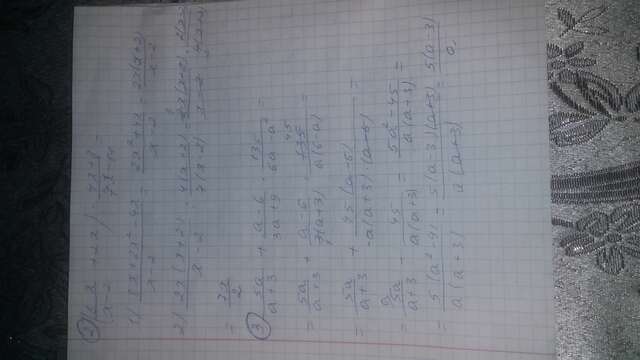 ② (8x/(x-2) + 2x) : (4x+8)/(7x-14) =
1) (8x+2x²-4x)/(x-2) = (2x²+4x)/(x-2) = 2x(x+2)/(x-2)
2) 2x(x+2)/(x-2) : 4(x+2)/7(x-2) =
= 7x/2
③ 5a/(a+3) + (a-6)/(3a+9) · 135/(6a-a²) =
= 5a/(a+3) + (a-6)/3(a+3) · 135/a(6-a) =
= 5a/(a+3) + 45(a-6)/-a(a+3)·(a-6) =
= 5a/(a+3) - 45/a(a+3) = (5a²-45)/a(a+3) =
= 5(a²-9)/a(a+3) = 5(a-3)(a+3)/a(a+3) = 5(a-3)/a